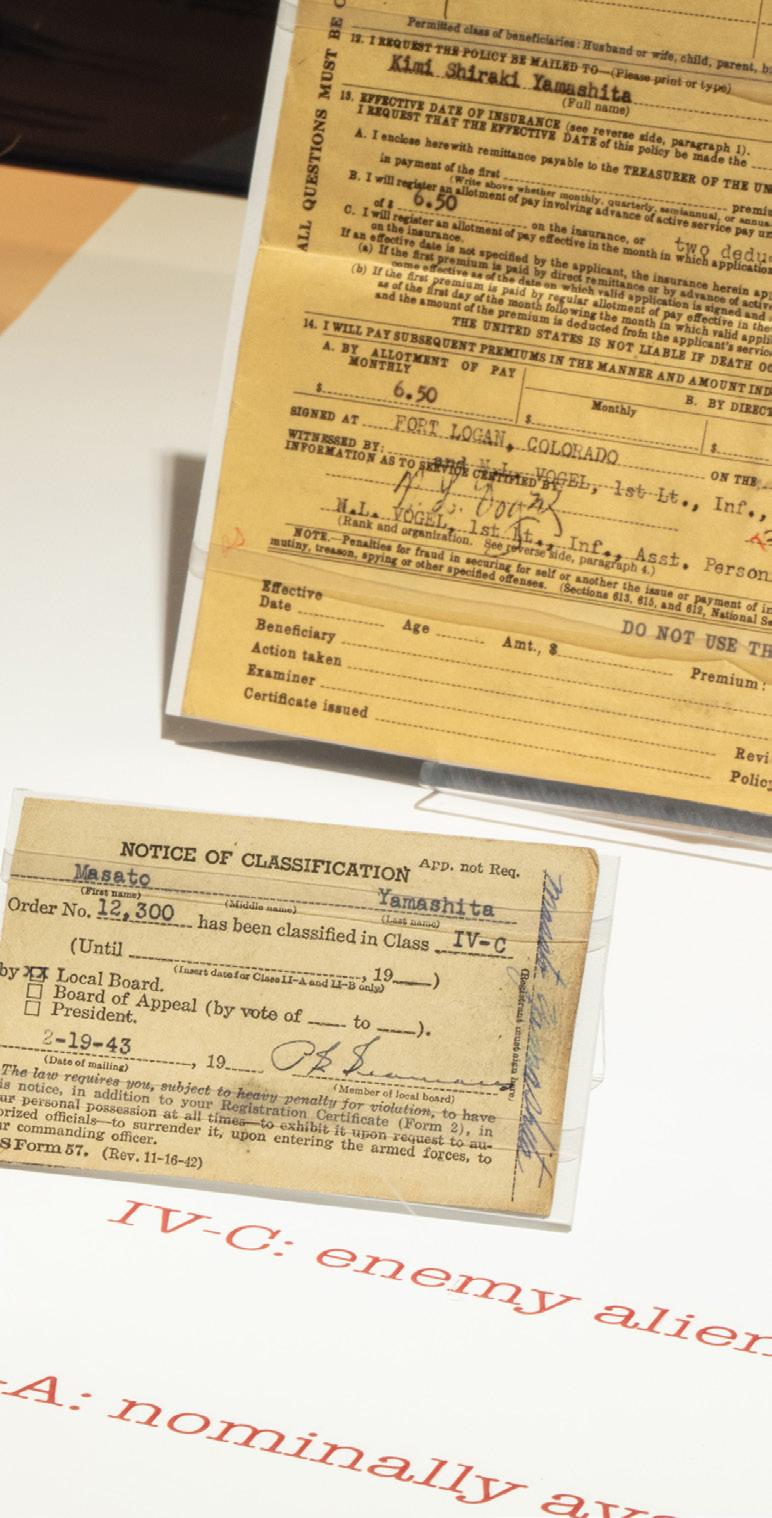 Permitted class of beneficiaries: Husband or wife, child, parent, b
12. I REQUEST THE POLICY BE MAILED TO—(Please print or type)
Kimi Shiraki Yamashita
(Full name)
ALL QUESTIONS MUST BE C
13. EFFECTIVE DATE OF INSURANCE (see reverse side, paragraph 1).
I REQUEST THAT THE EFFECTIVE DATE of this policy be made the
A. I enclose herewith remittance payable to the TREASURER OF THE UN
in payment of the first premiu
(Write above whether monthly, quarterly, semiannual, or annua
B. I will register an allotment of pay involving advance of active service pay un
of $ 6.50 on the insurance, or two dedu
C. I will register an allotment of pay effective in the month in which application
on the insurance.
If an effective date is not specified by the applicant, the insurance herein app
(a) If the first premium is paid by direct remittance or by advance of active
come effective as of the date on which valid application is signed and
(b) If the first premium is paid by regular allotment of pay effective in the
as of the first day of the month following the month in which valid appli
and the amount of the premium is deducted from the applicant's service
THE UNITED STATES IS NOT LIABLE IF DEATH OC
14. I WILL PAY SUBSEQUENT PREMIUMS IN THE MANNER AND AMOUNT IND
A. BY ALLOTMENT OF PAY
MONTHLY
B. BY DIRECT
Monthly
$ 6.50 $ $
SIGNED AT FORT LOGAN, COLORADO ON THE
WITNESSED BY:
INFORMATION AS TO SERVICE CERTIFIED BY:
and N.L. VOGEL, 1st Lt., Inf.,
N.L. VOGEL, 1st Lt., Inf., Asst. Person
(Rank and organization. See reverse side, paragraph 4.)
NOTE.—Penalties for fraud in securing for self or another the issue or payment of in
mutiny, treason, spying or other specified offenses. (Sections 613, 615, and 612, National Se
DO NOT USE TH
Effective
Date Age Amt., $ Premium:
Beneficiary
Action taken
Examiner Revi
Certificate issued Policy
NOTICE OF CLASSIFICATION App. not Req.
Masato Yamashita
(First name) (Middle name) (Last name)
Order No. 12,300 has been classified in Class IV-C
(Until , 19 )
(Insert date for Class II-A and II-B only)
by XX Local Board.
☐ Board of Appeal (by vote of to ).
☐ President.
2-19-43 , 19
(Date of mailing) (Member of local board)
The law requires you, subject to heavy penalty for violation, to have
is notice, in addition to your Registration Certificate (Form 2), in
ur personal possession at all times—to exhibit it upon request to au-
orized officials—to surrender it, upon entering the armed forces, to
r commanding officer.
S Form 57. (Rev. 11-16-42)
Masato Yamashita
(Registrant must sign here)
IV-C: enemy alien
-A: nominally ava